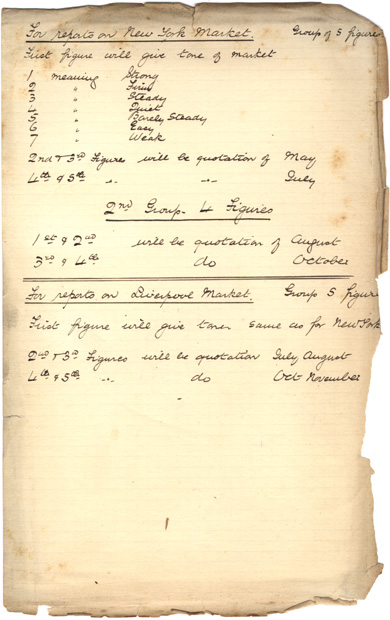 For reports on New York Market. Group of 5 figures
First figure will give tone of market
1 meaning Strong
2 " Firm
3 " Steady
4 " Quiet
5 " Barely Steady
6 " Easy
7 " Weak
2nd & 3rd Figures will be quotation of May
4th & 5th " " July
2nd Group - 4 Figures
1st & 2nd will be quotation of August
3rd & 4th do October
For reports on Liverpool Market. Group 5 figur
First figure will give tone same as for New York
2nd & 3rd Figures will be quotation July August
4th & 5th " do Oct November